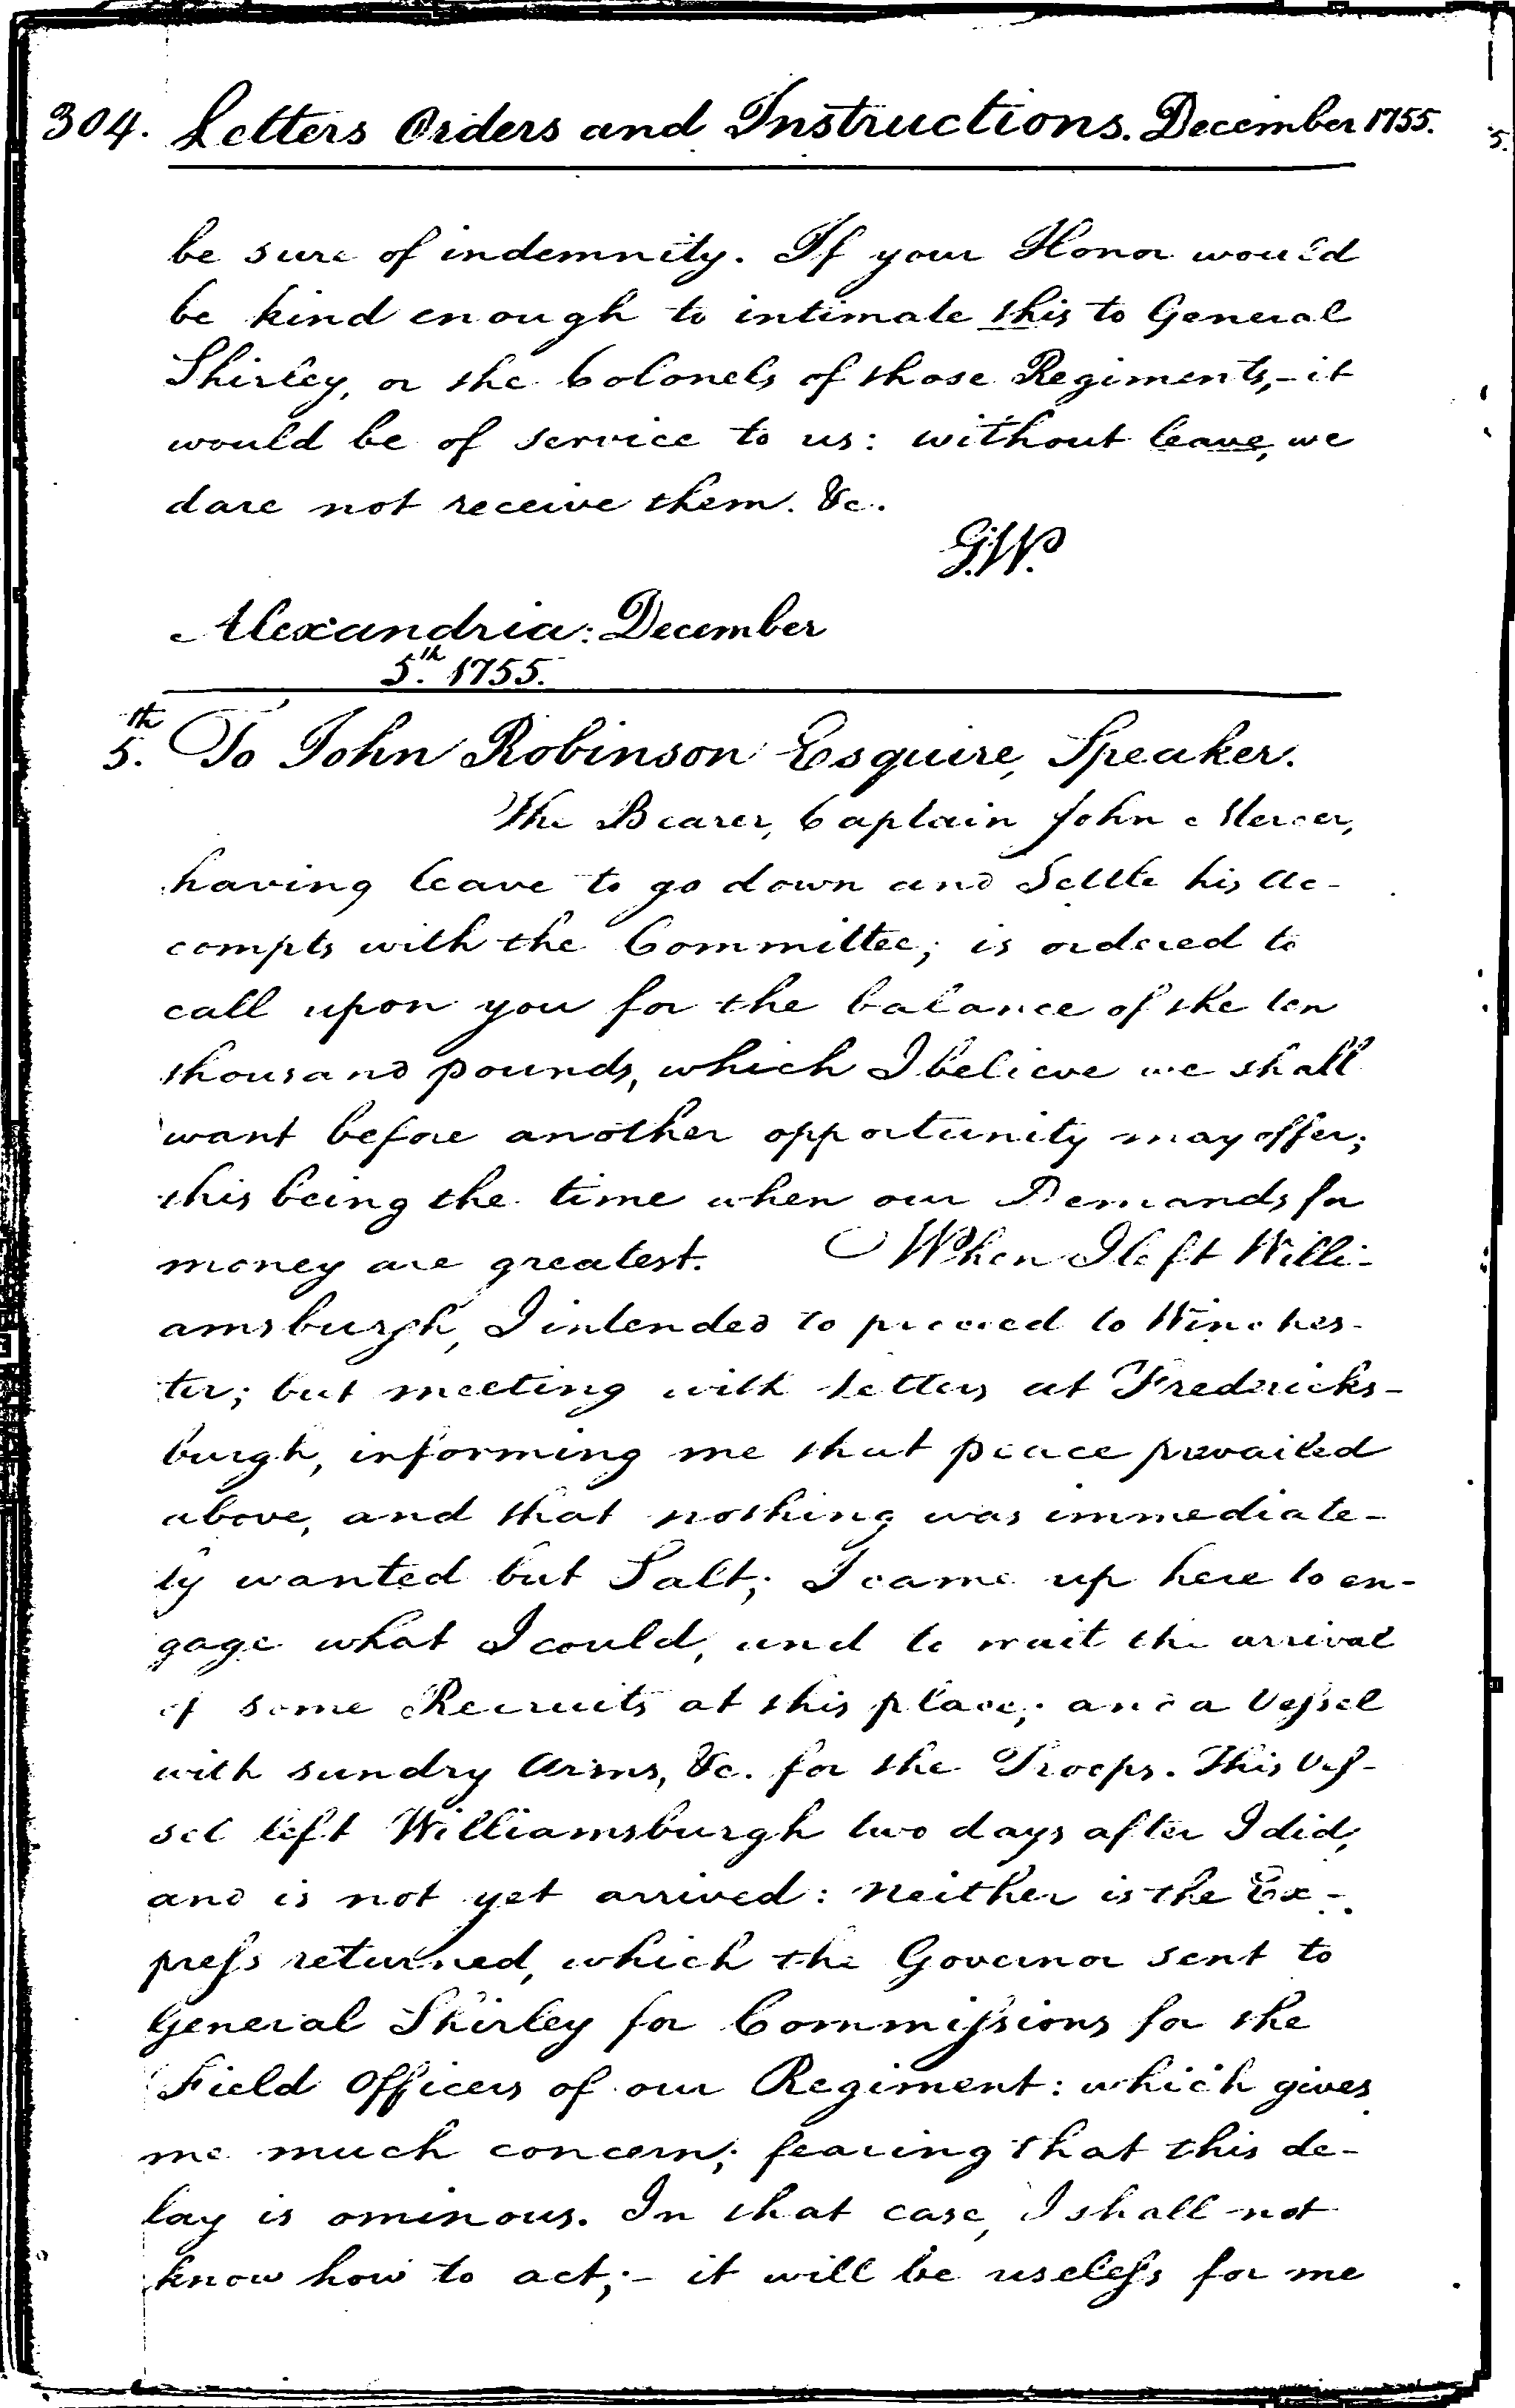 304. Letters Orders and Instructions. December 1755.
be sure of indemnity. If your Honor would
be kind enough to intimate this to General
Shirley, or the Colonels of those Regiments,- it
would be of service to us: without leave, we
dare not receive them. &c.
G.W.
Alexandria: December
5.th 1755.
5.th To John Robinson Esquire, Speaker.
The Bearer, Captain John Mercer,
having leave to go down and Settle his Ac-
compts with the Committee; is ordered to
call upon you for the balance of the ten
thousand pounds, which I believe we shall
want before another opportunity may offer;
this being the time when our Demands for
money are greatest. When I left Willi-
amsburgh, I intended to proceed to Winches-
ter; but meeting with letters at Fredericks-
burgh, informing me that peace prevailed
above, and that nothing was immediate-
ly wanted but Salt; I came up here to en-
gage what I could, and to wait the arrival
of some Recruits at this place; and a Vessel
with sundry Arms, &c. for the Troops. This Ves-
sel left Williamsburgh two days after I did,
and is not yet arrived: neither is the Ex-
press returned, which the Governor sent to
General Shirley for Commissions for the
Field Officers of our Regiment: which gives
me much concern; fearing that this de-
lay is ominous. In that case, I shall not
know how to act;- it will be useless for me